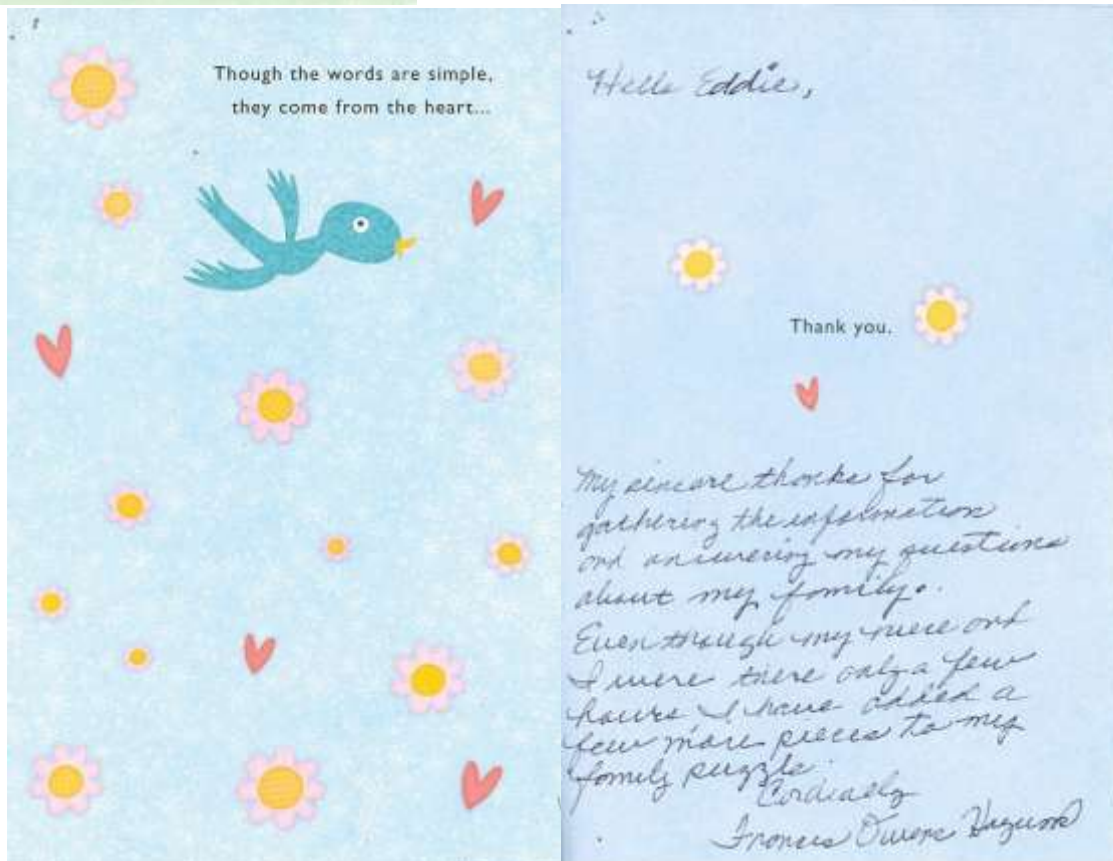 Though the words are simple,
they come from the heart...
Hello Eddie,
Thank you.
My sincere thanks for
gathering the information
and answering my questions
about my family.
Even though my niece and
I were there only a few
hours I have added a
few more pieces to my
family puzzle.
Cordially
Frances Owens